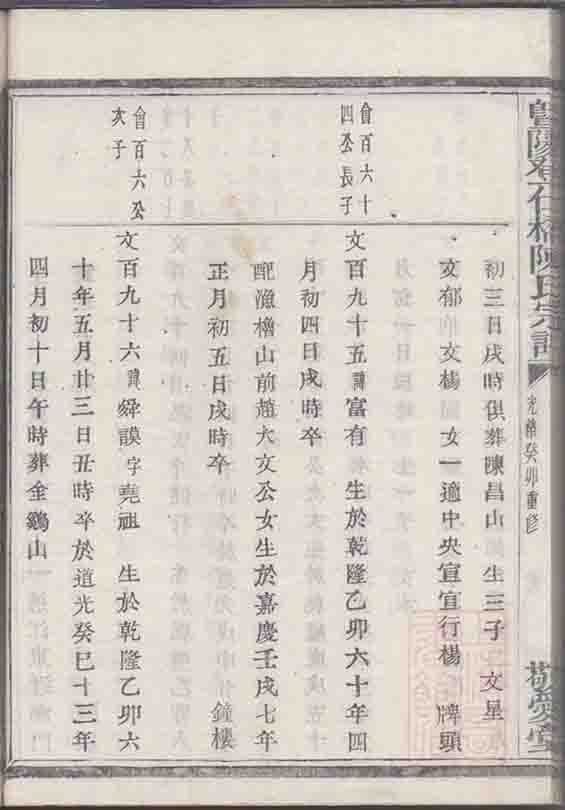 暨陽 仁橋陳氏宗譜
光緒癸卯重修
敬愛堂
初三日戌時俱葬陳昌山 生三子 文星
文郁 文楊 女一適中央宣宣行楊 牌頭
會百六十
四公長子
文百九十五諱富有 生於乾隆乙卯六十年四
月初四日戌時卒
配漁櫓山前趙大文公女生於嘉慶壬戌七年
正月初五日戌時卒 鐘樓
會百六公
次子
文百九十六諱舜謨字堯祖 生於乾隆乙卯六
十年五月廿三日丑時卒於道光癸巳十三年
四月初十日午時葬金鷄山